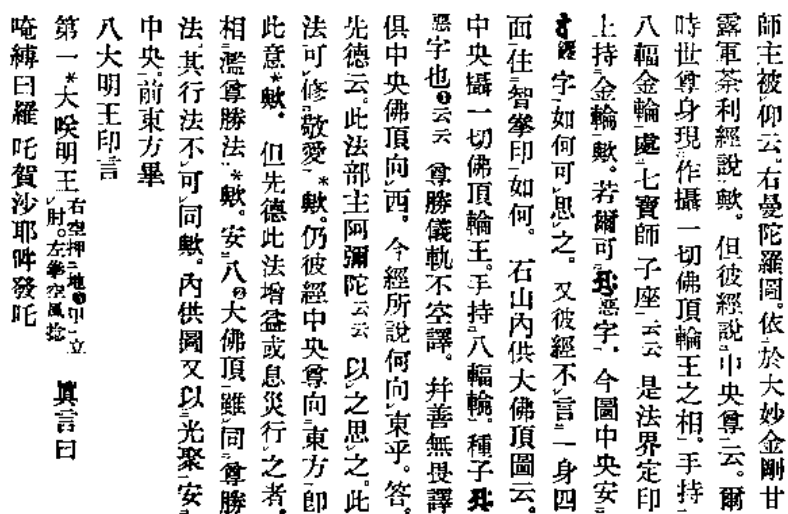 師主被仰云。右曼陀羅圖。依於大妙金剛甘
露軍荼利經說歟。但彼經說中央尊云。爾
時世尊身現作攝一切佛頂輪王之相。手持
八輻金輪。處七寶師子座云云是法界定印
上持金輪歟。若爾可惡字。今圖中央安
字如何可思之。又彼經不言一身四
面住智拳印如何。石山內供大佛頂圖云。
中央攝一切佛頂輪王。手持八輻輪。種子
惡字也云云尊勝儀軌不空譯。并善無畏譯
俱中央佛頂向西。今經所說何向東乎。答。
先德云。此法部主阿彌陀云云以之思之。此
法可修敬愛*歟。仍彼經中央尊向東方卽
此意*歟。但先德此法增益或息災行之者。
相濫尊勝法*歟。安八大佛頂雖同尊勝
法。其行法不可同歟。內供圖又以光聚安
中央。前東方畢
八大明王印言
第一*大唉明王右空押地甲立肘。左拳空風捻 眞言曰
唵縛曰羅吒賀沙耶吽發吒